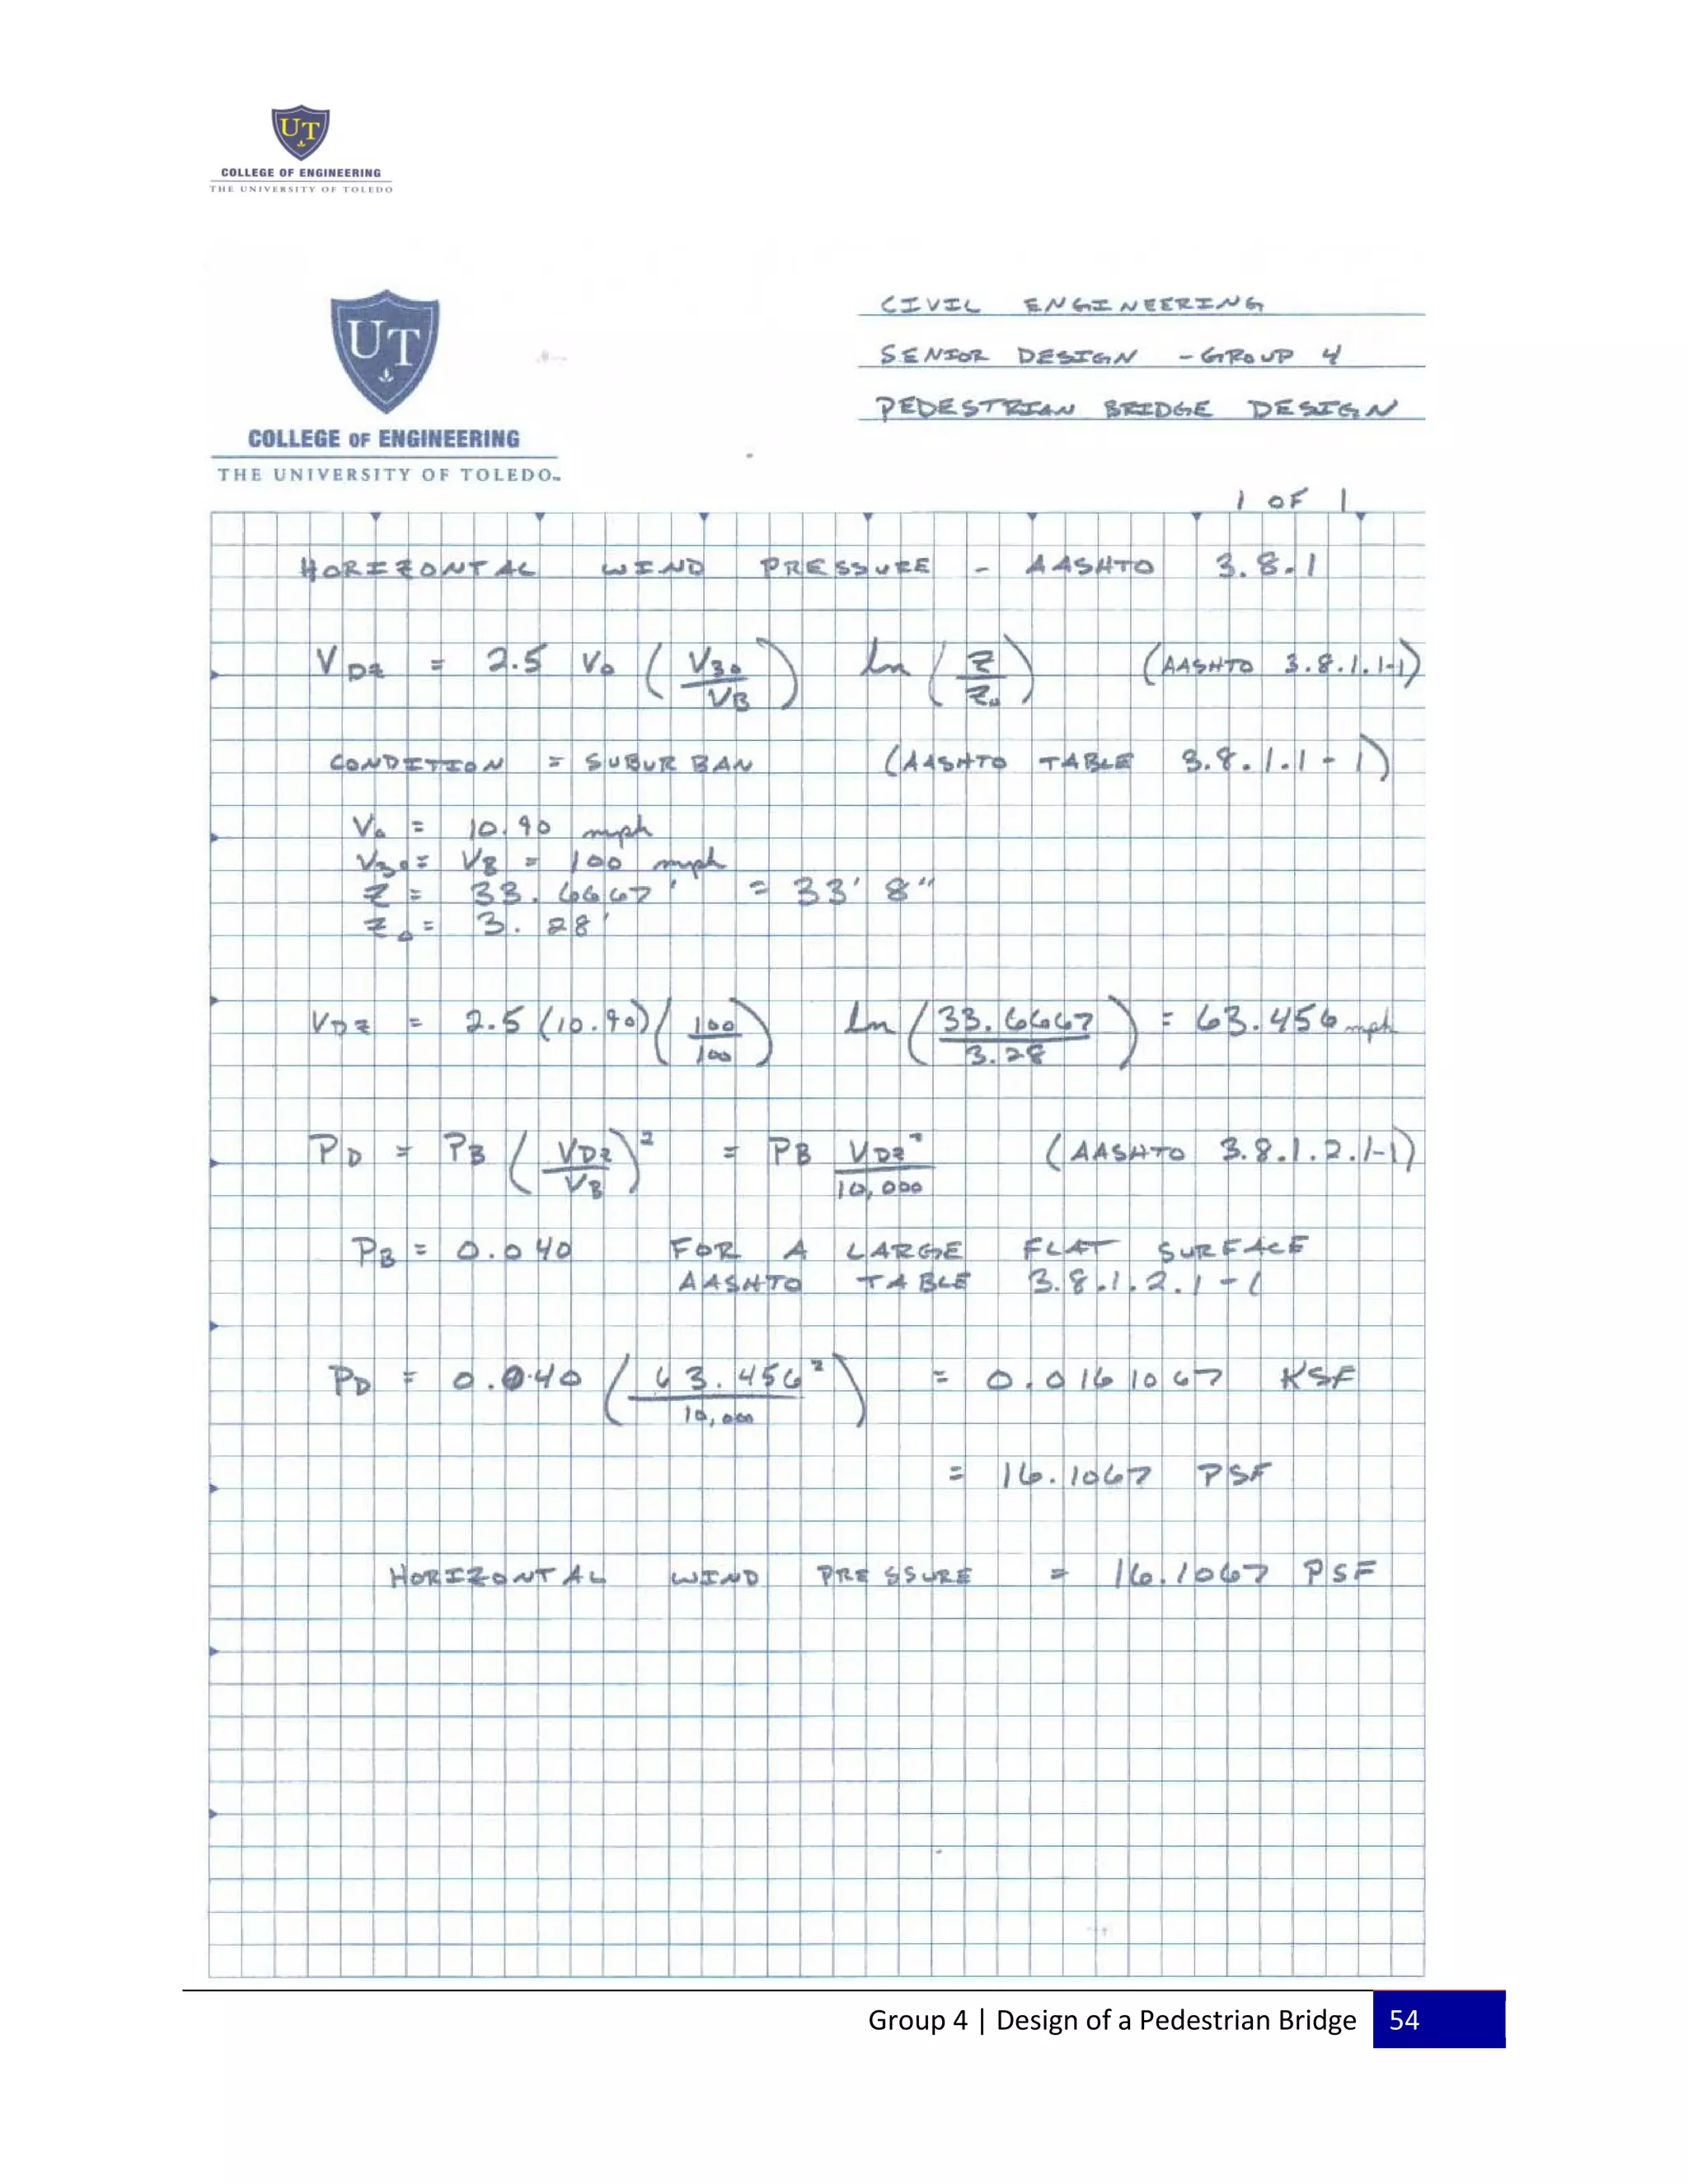 UT
COLLEGE OF ENGINEERING
THE UNIVERSITY OF TOLEDO
UT
COLLEGE OF ENGINEERING
THE UNIVERSITY OF TOLEDO™
CIVIL ENGINEERING
SENIOR DESIGN - GROUP 4
PEDESTRIAN BRIDGE DESIGN
1 OF 1
HORIZONTAL WIND PRESSURE - AASHTO 3.8.1
V_DZ = 2.5 V_0 (V_30 / V_B) ln (Z / Z_0) (AASHTO 3.8.1.1-1)
CONDITION = SUBURBAN (AASHTO TABLE 3.8.1.1 - 1)
V_0 = 10.90 mph
V_30 = V_B = 100 mph
Z = 33.6667' = 33' 8"
Z_0 = 3.28'
V_DZ = 2.5 (10.90) (100 / 100) ln (33.6667 / 3.28) = 63.456 mph
P_D = P_B (V_DZ / V_B)² = P_B V_DZ² / 10,000 (AASHTO 3.8.1.2.1-1)
P_B = 0.040 FOR A LARGE FLAT SURFACE
AASHTO TABLE 3.8.1.2.1 - 1
P_D = 0.040 (63.456² / 10,000) = 0.0161067 KSF
= 16.1067 PSF
HORIZONTAL WIND PRESSURE = 16.1067 PSF
Group 4 | Design of a Pedestrian Bridge 54